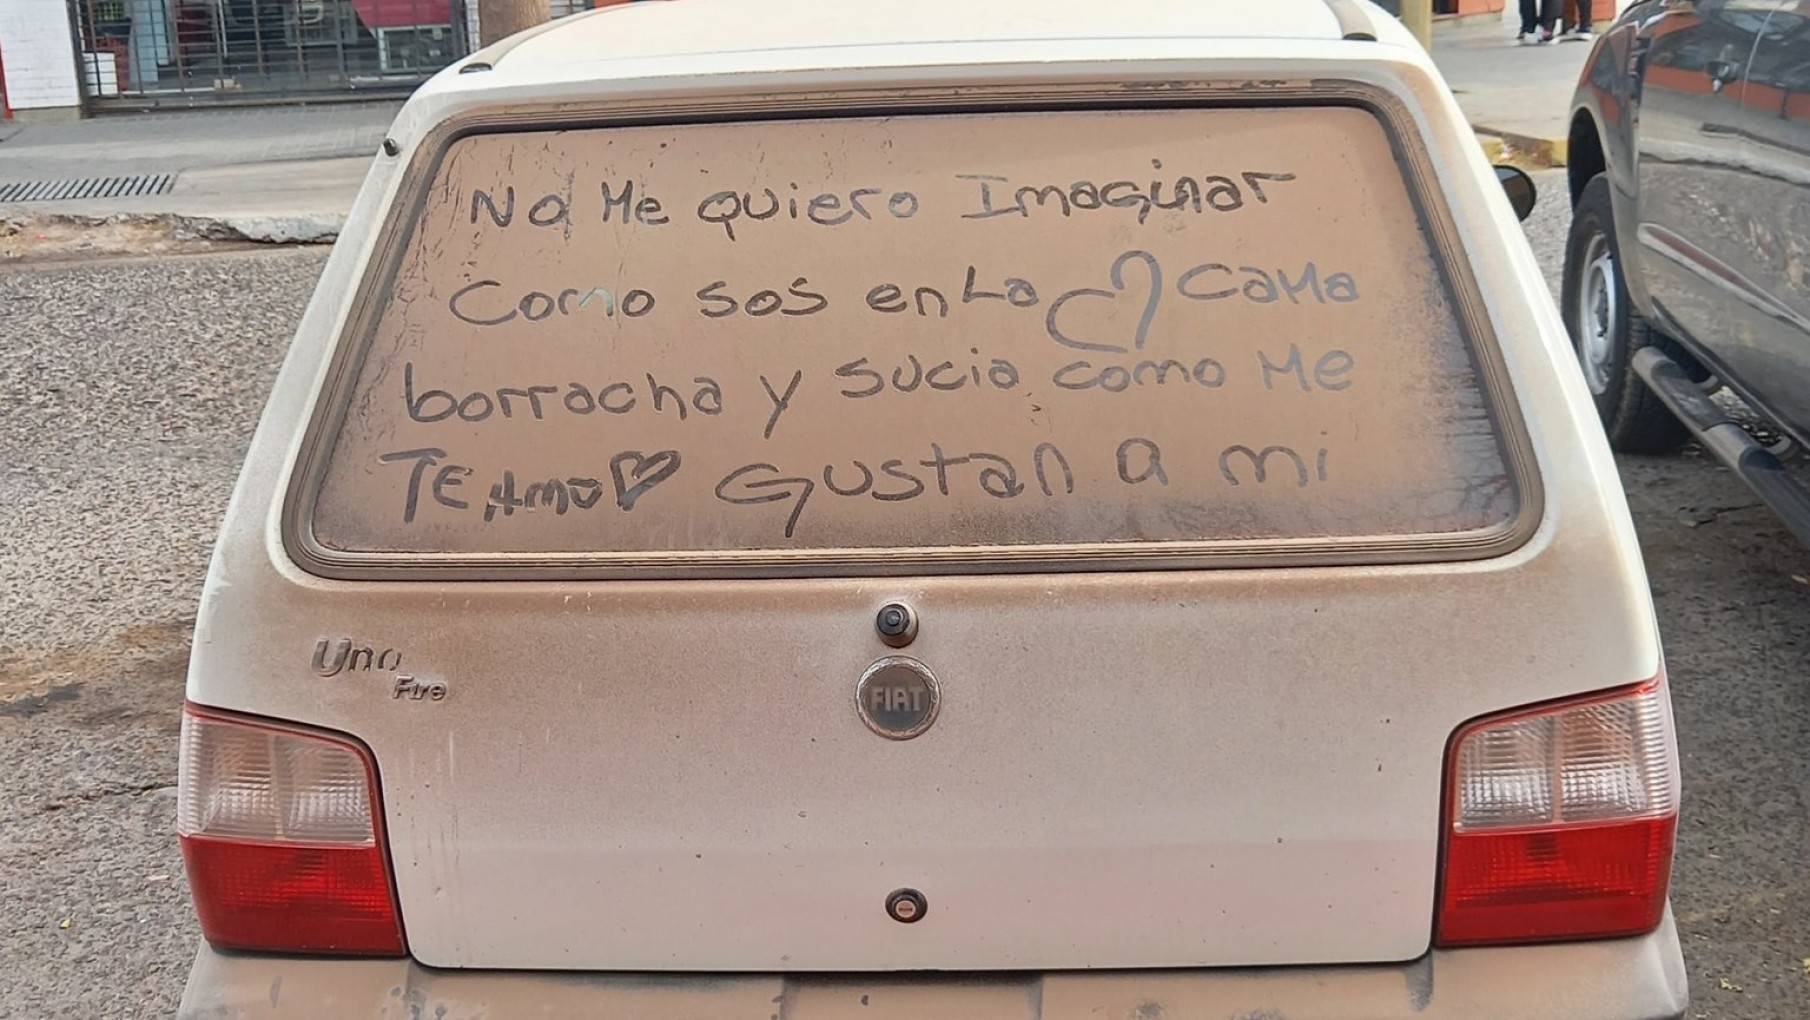 No Me quiero Imaginar
Como sos en La Cama
borracha y sucia como Me
TE Amo Gustan a mi
Uno
Fire
FIAT